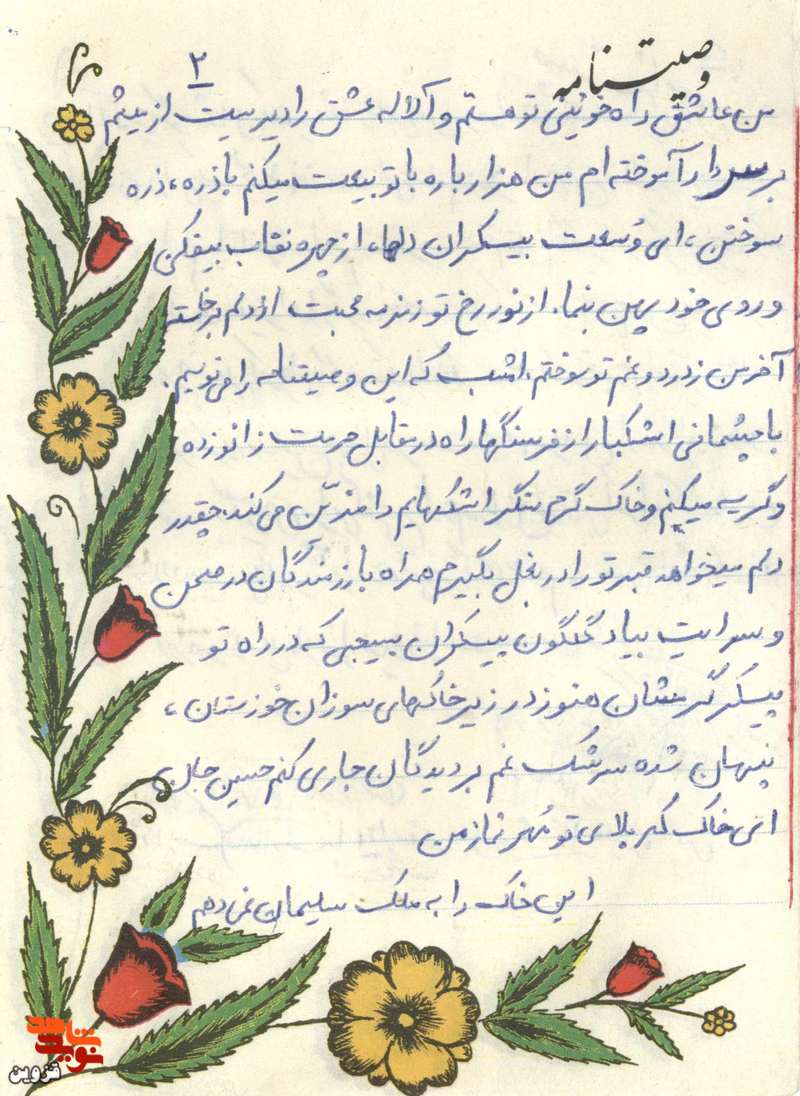 وصیتنامه
۲
من عاشق راه خونین تو هستم و آلاله عشق را دیر بیست از بیشم
بر سر دار آموخته ام من هزار باره با تو بیعت میکنم با ذره، ذره
سوختن، ای وُسعت بیکران دلها، از چهره نقاب بیفکن
و روی خود بمن بنما. از نور رخ تو زمزمه محبت از دلم برخاسته
آخر من ز درد و غم تو سوختم. امشب که این وصیتنامه را می نویسم.
با چشمانی اشکبار از فرسنگها راه در مقابل حرمت زانو زده
و گریه میکنم و خاک گرم سنگر اشکهایم را مزیّن می کند، چقدر
دلم میخواهد قبر تو را در بغل بگیرم همراه با رزمندگان در صحن
و سرایت بیاد گلگون پیکران بسیجی که در راه تو
پیکر گرمشان هنوز در زیر خاکهای سوزان خوزستان،
پنهان شده سرشک غم بر دیدگان جاری کنم حسین جان
ای خاک کربلای تو مُهر نماز من
این خاک را به ملک سلیمان نمی دهم
نوید شاهد
قزوین